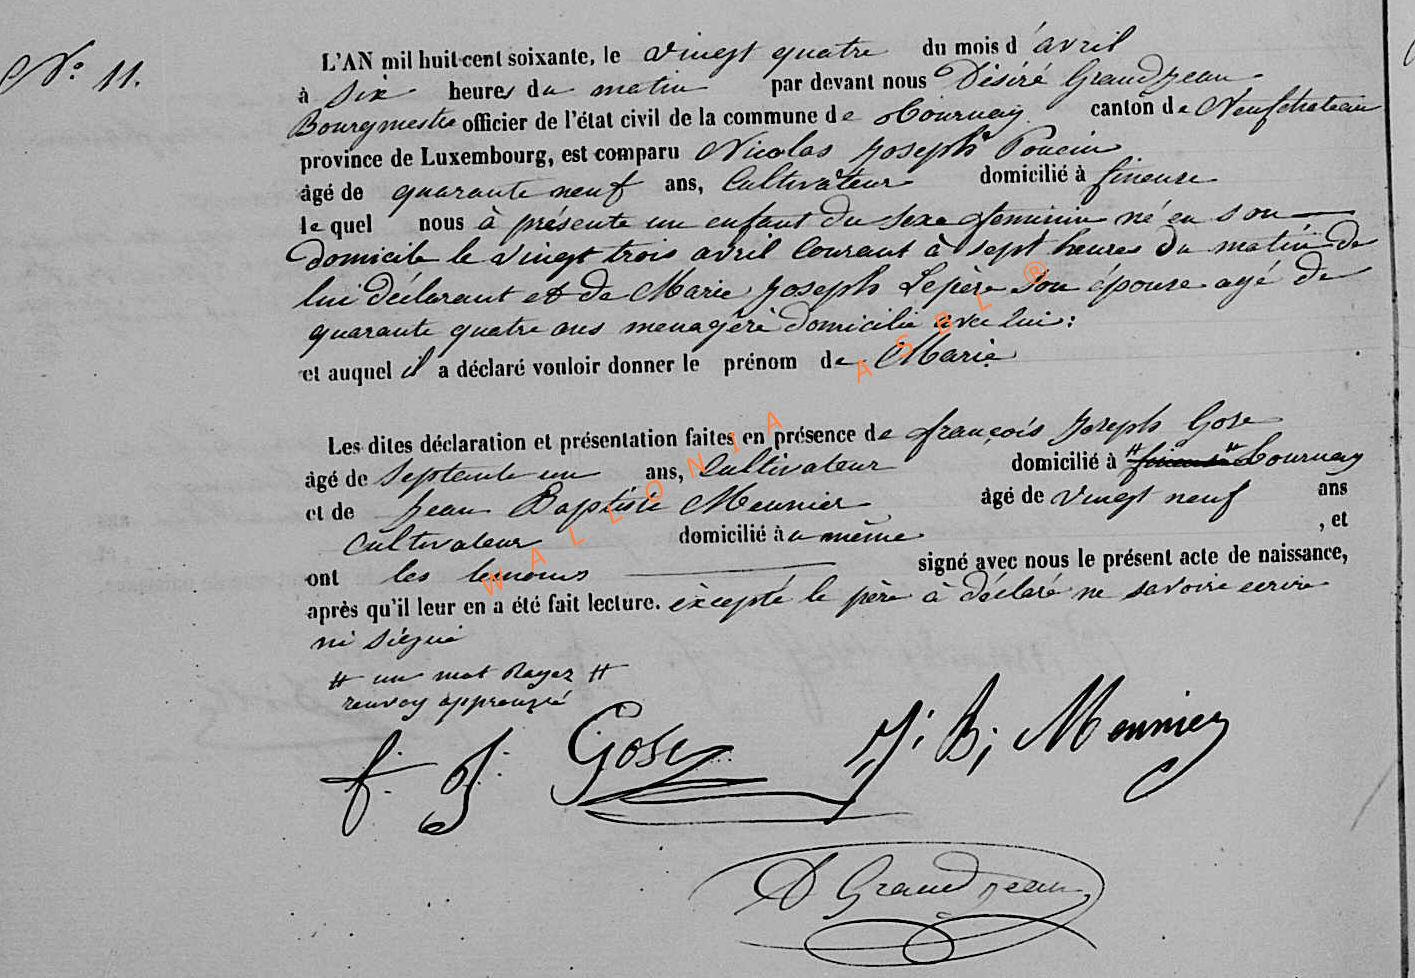 N.° 11.
L'AN mil huit cent soixante, le vingt quatre du mois d'avril
à six heures du matin par devant nous Désiré Grandjean
Bourgmestre officier de l'état civil de la commune de Tournay canton de Neufchateau
province de Luxembourg, est comparu Nicolas Joseph Poncin
âgé de quarante neuf ans, Cultivateur domicilié à fineuse
le quel nous à présenté un enfant du sexe feminin né en son
domicile le vingt trois avril courant à sept heures du matin de
lui déclarant et de Marie Joseph Lepère son épouse agé de
quarante quatre ans menagère domicilié avec lui :
et auquel il a déclaré vouloir donner le prénom de Marie
Les dites déclaration et présentation faites en présence de françois Joseph Gose
âgé de septante un ans, Cultivateur domicilié à # # Tournay
et de Jean Baptiste Meunier âgé de vingt neuf ans
Cultivateur domicilié à u même , et
ont les temoins signé avec nous le présent acte de naissance,
après qu'il leur en a été fait lecture. éxcepté le père à déclaré ne savoire ecrire
ni siégné
# un mot Rayez #
renvoy approuvé
f. J. Gose J. B. Meunier
D Grandjean
WALLONIA ASBL ®